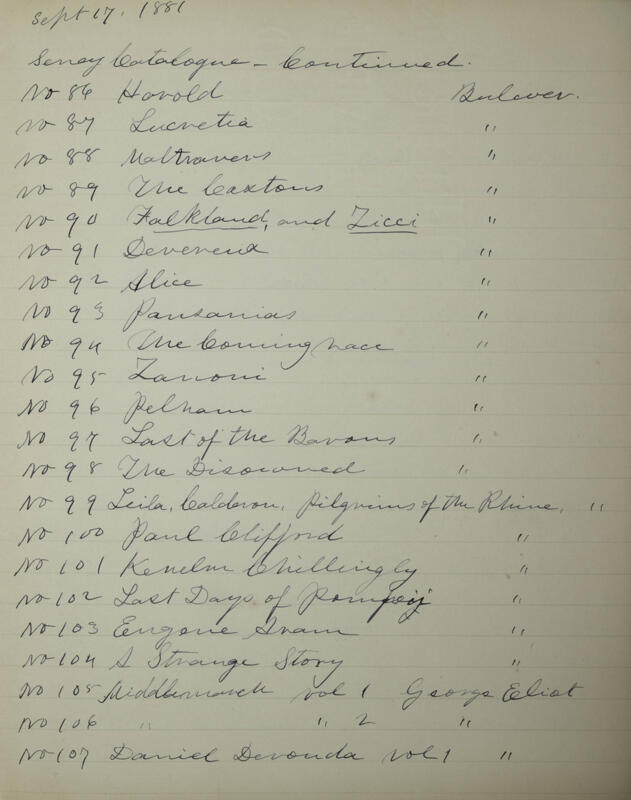 Sept 17, 1881
Seney Catalogue - Continued.
No 86 Harold Bulwer.
No 87 Lucretia "
No 88 Maltravers "
No 89 The Caxtons "
No 90 Falkland, and Zicci "
No 91 Devereux "
No 92 Alice "
No 93 Pausanias "
No 94 The Coming race "
No 95 Zanoni "
No 96 Pelham "
No 97 Last of the Barons "
No 98 The Disowned "
No 99 Leila, Calderon, Pilgrims of the Rhine, "
No 100 Paul Clifford "
No 101 Kenelm Chillingly "
No 102 Last Days of Pompeij "
No 103 Eugene Aram "
No 104 A Strange Story "
No 105 Middlemarch vol 1 George Eliot
No 106 " " 2 "
No 107 Daniel Deronda vol 1 "